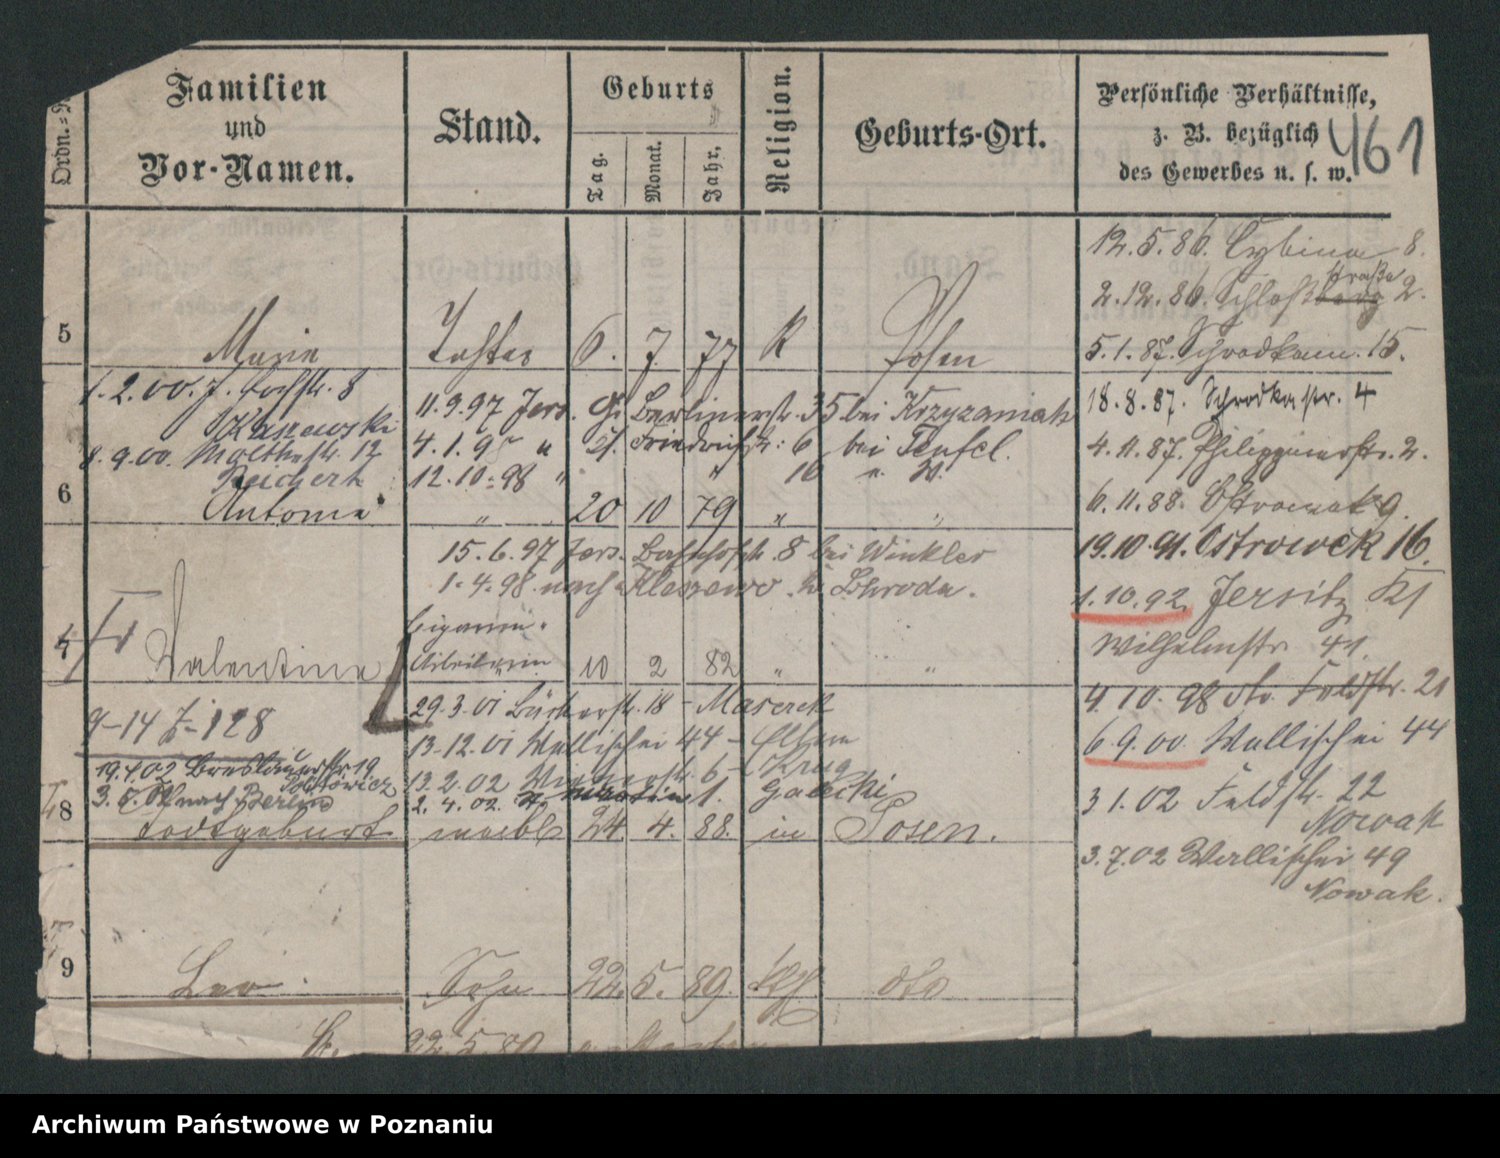 Ordn.=
Familien
und
Vor-Namen.
Stand.
Geburts
Tag.
Monat.
Jahr.
Religion.
Geburts-Ort.
Persönliche Verhältnisse,
z. B. bezüglich
des Gewerbes u. s. w.
461
12.5.86. Cybina 8.
straße
2.12.86. Schloß 2.
5.1.87. Schrodkam. 15.
5 Marie 6. 7 77 K Posen
1.2.00. J. 8
11.9.97 Jers. Gr. Berlinerstr. 35 bei Krzyzaniak
18.8.87. Schrodkastr. 4
Kaszewski
4.1.9 " Friedrichstr. 6 bei Teufel.
8.9.00. Moltkestr. 12
4.11.87. Philippinerstr. 2.
Reichert
12.10.98 " " 16 " W.
6 Antonie " 20 10 79 " "
6.11.88. Ostrowek 9.
15.6.97 Jers. Bahnhofstr. 8 bei Winkler
19.10.91. Ostrowek 16.
1.4.98. nach Kleszewo b. Schroda.
1.10.92 Jersitz Kl
Wilhelmstr 41.
Cigarren-
7 Valentine Arbeiterin 10 2 82 " "
29.3.01 Bäckerstr. 18 - Maserek
4.10.98 Feldstr. 21
9-14 J-128
13.12.01 Wallischei 44 -
6.9.00. Wallischei 44
19.4.02 Breslauerstr 19
13.2.02 Wienerstr. 6 - Krug
3. nach Berlin
2.4.02. St. Martin 1. Galecki
31.02 Feldstr. 22
Nowak
8 Todtgeburt weibl 24. 4. 88. in Posen.
3.7.02 Wallischei 49
Nowak.
9 Leo Sohn 22. 5. 89. kth dto
22.5.89
Archiwum Państwowe w Poznaniu